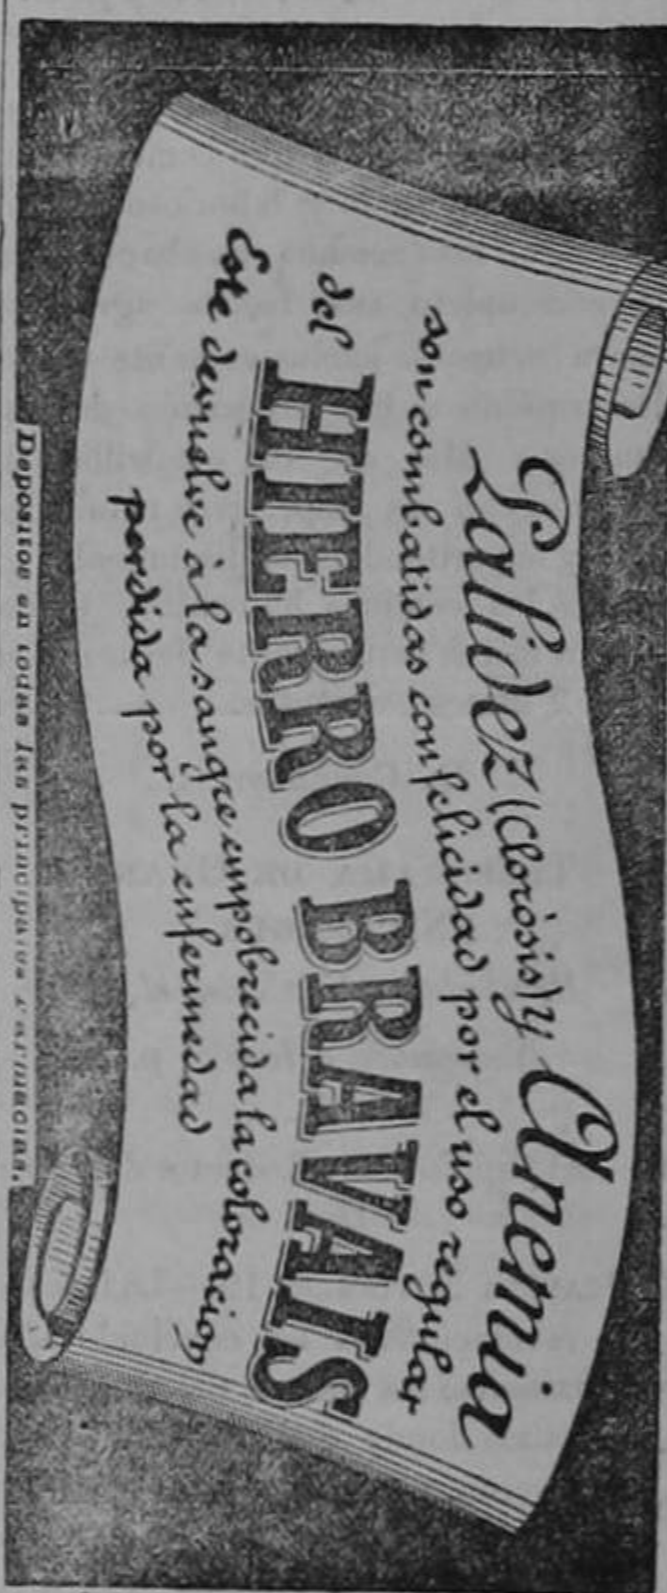 Palidez (Clorósis) y Anemia
son combatidas con felicidad por el uso regular
del HIERRO BRAVAIS
Este devuelve à la sangre empobrecida la coloracion
perdida por la enfermedad
Depositos en todas las principales Farmacias.